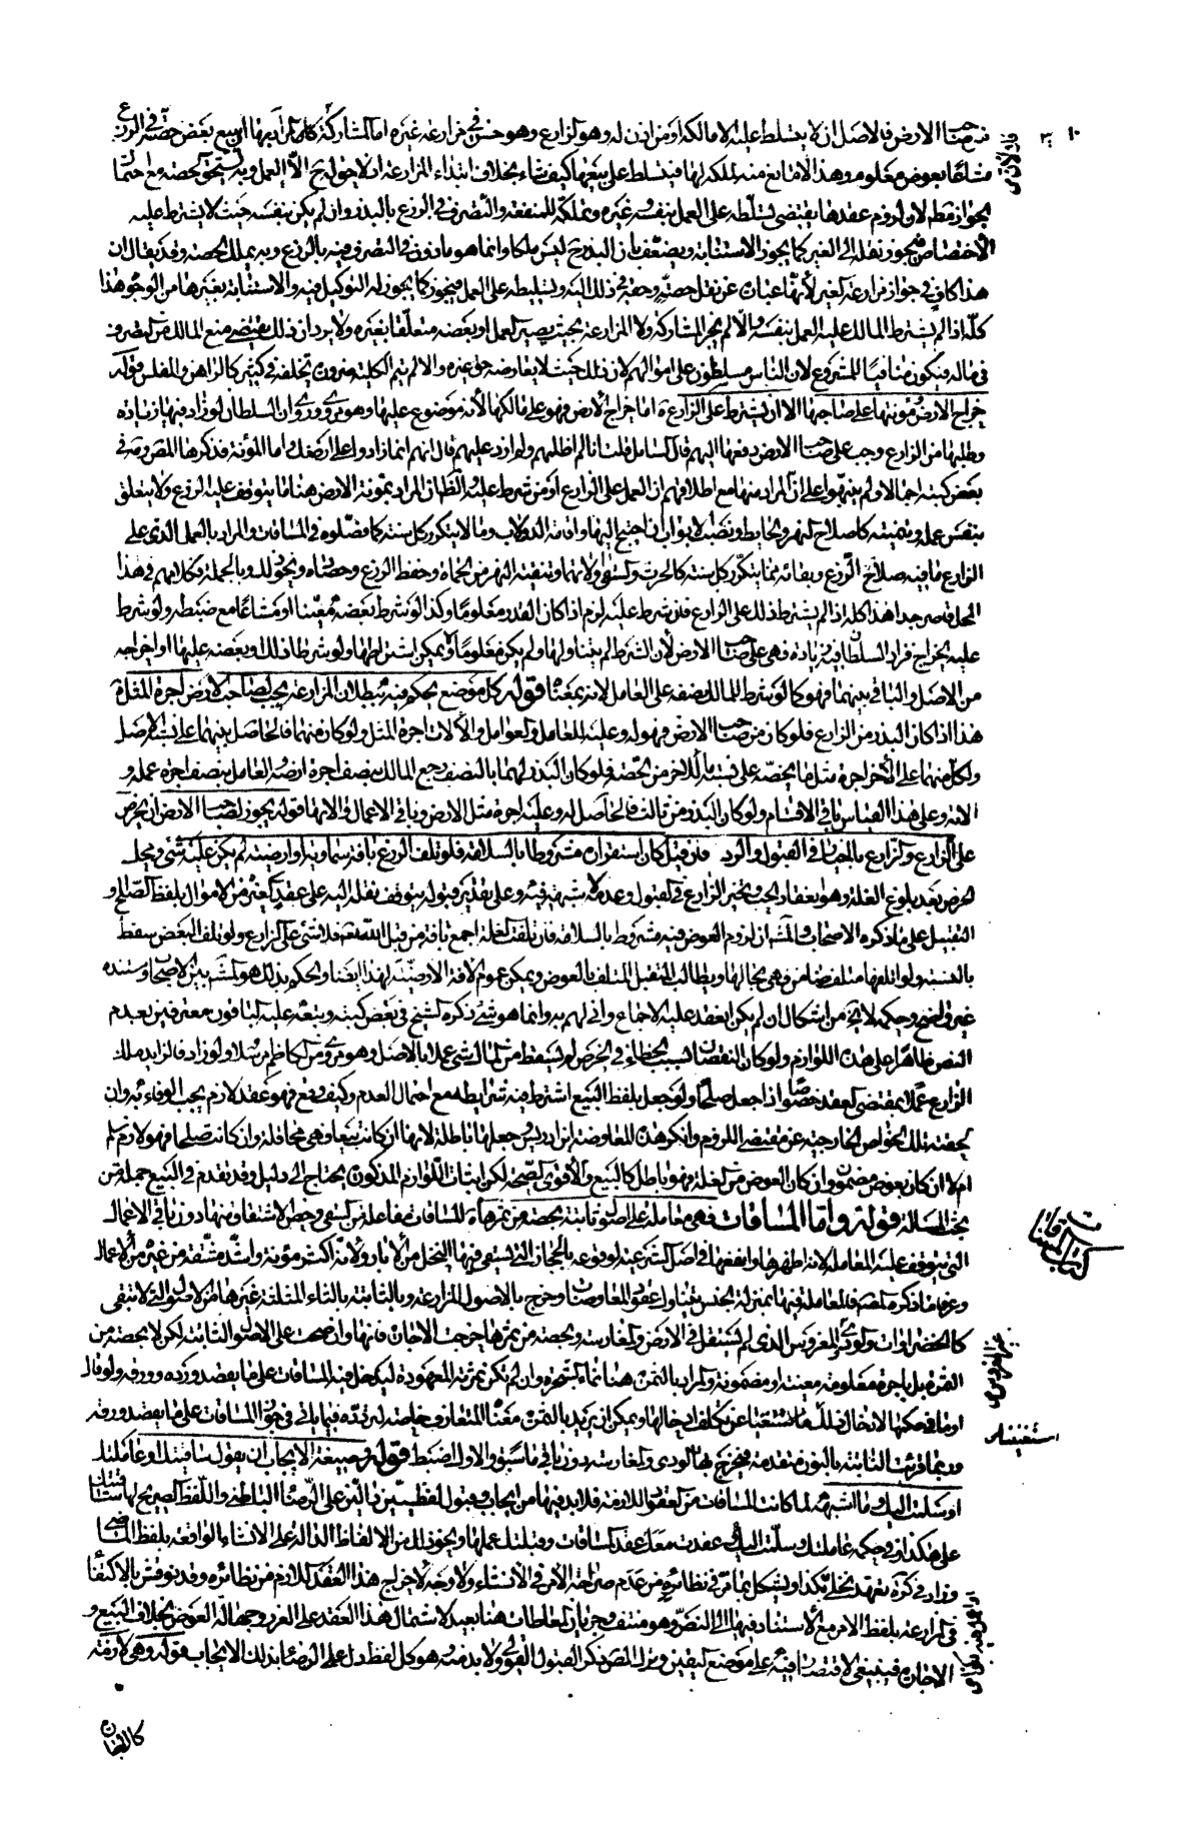 من صاحب الارض فالاصل ان لا يتسلط عليه الا مالكه او من اذن له وهو الزارع وهو حسن في مزارعة غيره اما المشاركة فالمراد بها ان يبيع بعض حصته في الزرع
مشاعا بعوض معلوم وهذا لا مانع منه لملكه لها فيتسلط على بيعها كيف شاء بخلاف ابتداء المزارعة اذ لا حق له ح الا العمل وبه يستحق الحصة مع احتمال
الجواز مطلقا لان لزوم عقدها يقتضي تسلطه على العمل بنفسه وغيره وتملكه للمنفعة والتصرف في الزرع بالبذر وان لم يكن بنفسه حيث لا يشترط عليه
الاختصاص فيجوز نقله الى الغير كما يجوز الاستنابة ويضعف بان البذر ح ليس ملكا وانما هو ماذون في التصرف فيه بالزرع وبه يملك الحصة وقد يقال ان
هذا كاف في جواز مزارعة الغير لانها عبارة عن نقل حصته وحقه في ذلك اليه وتسليطه على العمل فيجوز كما يجوز له التوكيل فيه والاستنابة بغيرها من الوجوه هذا
كله اذا لم يشترط المالك عليه العمل بنفسه والا لم يجز المشاركة ولا المزارعة بحيث يصير العمل او بعضه متعلقا بغيره ولا يرد ان ذلك يقتضي منع المالك من التصرف
في ماله فيكون منافيا للمشروع لان الناس مسلطون على اموالهم لان ذلك حيث لا يعارضه حق غيره والا لم يتم الكلية ضرورة تخلفه في كثير كالراهن والمفلس قوله
خراج الارض ومؤنتها على صاحبها الا ان يشترط على الزارع اما خراج الارض فهو على مالكها لانه موضوع عليها وهو مروي وروي ان السلطان لو زاد فيها زيادة
وطلبها من الزارع وجب على صاحب الارض دفعها اليهم قال السائل قلت انا لم اظلمهم ولم ازد عليهم قال انهم انما زادوا على ارضك اما المؤنة فذكرها المص وفي
بعض كتبه اجمالا ولم ينبهوا على ان المراد منها مع اطلاقهم ان العمل على الزارع او من شرط عليه والظاهر ان المراد بمؤنة الارض هنا ما يتوقف عليه الزرع ولا يتعلق
بنفس عمله وتنميته كاصلاح النهر والحايط ونصب الابواب ان احتيج اليها واقامة الدولاب وما لا يتكرر كل سنة كما فصلوه في المساقات والمراد بالعمل الذي على
الزارع ما فيه صلاح الزرع وبقائه مما يتكرر كل سنة كالحرث والسقي والاتها وتنقية النهر من الحماة وحفظ الزرع وحصاده ونحو ذلك وبالجملة فكلامهم في هذا
المحل قاصر جدا هذا كله اذا لم يشترط ذلك على الزارع فان شرط عليه لزم اذا كان القدر معلوما وكذا لو شرط بعضه معينا او مشاعا مع ضبطه ولو شرط
عليه الخراج فزاد السلطان فيه زيادة فهي على صاحب الارض لان الشرط لم يتناولها ولم يكن معلوما فلا يمكن اشتراطها ولو شرطا ذلك او بعضه عليها او اخراجه
من الاصل والباقي بينهما فهو كما لو شرط المالك بعضه على العامل لانه بمعناه قوله كل موضع يحكم فيه ببطلان المزارعة يجب لصاحب الارض اجرة المثل
هذا اذا كان البذر من الزارع فلو كان من صاحب الارض فهو له وعليه للعامل والعوامل والالات اجرة المثل ولو كان منهما فالحاصل بينهما على نسبة الاصل
ولكل منهما على الاخر اجرة مثل ما يخصه على نسبة ما للاخر من الحصة فلو كان البذر لهما بالنصف رجع المالك بنصف اجرة ارضه والعامل بنصف اجرة عمله و
الاته وعلى هذا القياس باقي الاقسام ولو كان البذر من ثالث فالحاصل له وعليه اجرة مثل الارض وباقي الاعمال والاتها قوله يجوز لصاحب الارض ان يخرص
على الزارع والزارع بالخيار في القبول والرد فان قبل كان استقراره مشروطا بالسلامة فلو تلف الزرع بافة سماوية او ارضية لم يكن عليه شئ ومحل
الخرص بعد بلوغ الغلة وهو انعقاد الحب ويخير الزارع في القبول وعدمه لا شبهة فيه وعلى تقدير قبوله يتوقف نقله اليه على عقد كغيره من الاموال بلفظ الصلح و
التقبيل على ما ذكره الاصحاب والمشهور ان لزوم العوض فيه مشروط بالسلامة فان تلفت الغلة اجمع بافة من قبل الله تعالى فلا شئ على الزارع ولو تلف البعض سقط
بالنسبة ولو اتلفها متلف ضامن فهي بحالها ويطالب المتقبل المتلف بالعوض ويمكن عموم الافة الارضية لهذا ايضا والحكم بذلك هو المشهور بين الاصحاب ومستنده
غير واضح وحكمه لا يخ من اشكال ان لم يكن انعقد عليه الاجماع واني لهم به وانما هو شئ ذكره الشيخ في بعض كتبه وتبعه عليه الباقون معترفين بعدم
النص ظاهرا على هذه اللوازم ولو كان النقصان بسبب الخطاء في الخرص لم يسقط من المال شئ عملا بالاصل وهو مروي عن الكاظم مرسلا ولو زاد فالزايد ملك
الزارع عملا بمقتضى العقد خصوصا اذا جعل صلحا ولو جعل بلفظ البيع اشترط فيه شرايطه مع احتمال العدم وكيف وقع فهو عقد لازم يجب الوفاء به وان
لحقته تلك الخواص الخارجية عن مقتضى اللزوم وانكر هذه المعاوضة ابن ادريس وجعلها باطلة لانها ان كانت بيعا فهي محاقلة وان كانت صلحا فهو لازم سلم
ام لا ان كان بعوض مضمون وان كان العوض من الغلة فهو باطل كالبيع والاقوى الصحة لكن اثبات اللوازم المذكورة يحتاج الى دليل وقد تقدم في البيع جملة من
بحث المسئلة قوله واما المساقات فهي معاملة على اصول ثابتة بحصة من ثمرها المساقات مفاعلة من السقي وخص الاشتقاق منها دون باقي الاعمال
التي تتوقف عليه المعاملة لانه اظهرها وانفعها في اصل الشرعية لوقوعه بالحجاز التي يسقى فيها النخل من الابار ولانه اكثر مؤنة واشد مشقة من غيره من الاعمال
وعرفها ما ذكره المص فالمعاملة فيها بمنزلة الجنس يتناول عقود المعاوضات وخرج بالاصول المزارعة وبالثابتة بالثاء المثلثة غيرها من الاصول التي لا تبقى
كالخضراوات والودي المغروس الذي لم يستقل في الارض والمغارسة وبحصة من ثمرها خرجت الاجارة فانها وان صحت على الاصول الثابتة لكن لا بحصة من
الثمرة بل باجرة معلومة معينة او مضمونة والمراد بالثمرة هنا نماء الشجرة وان لم تكن ثمرته المعهودة ليدخل فيه المساقات على ما يقصد ورده وورقه ولو قال
او ما في حكمها لادخال ذلك لاستغنينا عن تكلف ادخالها ويمكن ان يريد بالثمرة معناها المتعارف خاصة لتردده فيما ياتي في جواز المساقات على ما يقصد ورقه
وربما قرئت النابتة بالنون متقدمة فيخرج بها الودي والمغارسة دون باقي ما سبق والاول اضبط قوله وصيغة الايجاب ان يقول ساقيتك او عاملتك
او سلمت اليك وما اشبهه لما كانت المساقات من العقود اللازمة فلا بد فيها من ايجاب وقبول لفظيين دالين على الرضا الباطني واللفظ الصريح لها ساقيتك
على هكذا وفي حكمه عاملتك وسلمت اليك وعقدت معك عقد المساقات وقبلتك عملها ونحو ذلك من الالفاظ الدالة على الانشاء الواقعة بلفظ الماضي
وزاد في كرة تعهد نخلي بكذا ويشكل بما مر في نظائره من عدم صراحة الامر في الانشاء ولا وجه لاخراج هذا العقد اللازم من نظائره وقد نوقش بالاكتفاء
في المزارعة بلفظ الامر مع الاستناد فيها الى النص وهو منتف وجريان المعاطات هنا بعيد لاشتمال هذا العقد على الغرر وجهالة العوض بخلاف البيع و
الاجارة فينبغي الاقتصار فيه على موضع اليقين وترك المص ذكر القبول القولي ولا بد منه وهو كل لفظ دل على الرضا بذلك الايجاب قوله وهي لازمة
كتاب المساقات
كالاجارة